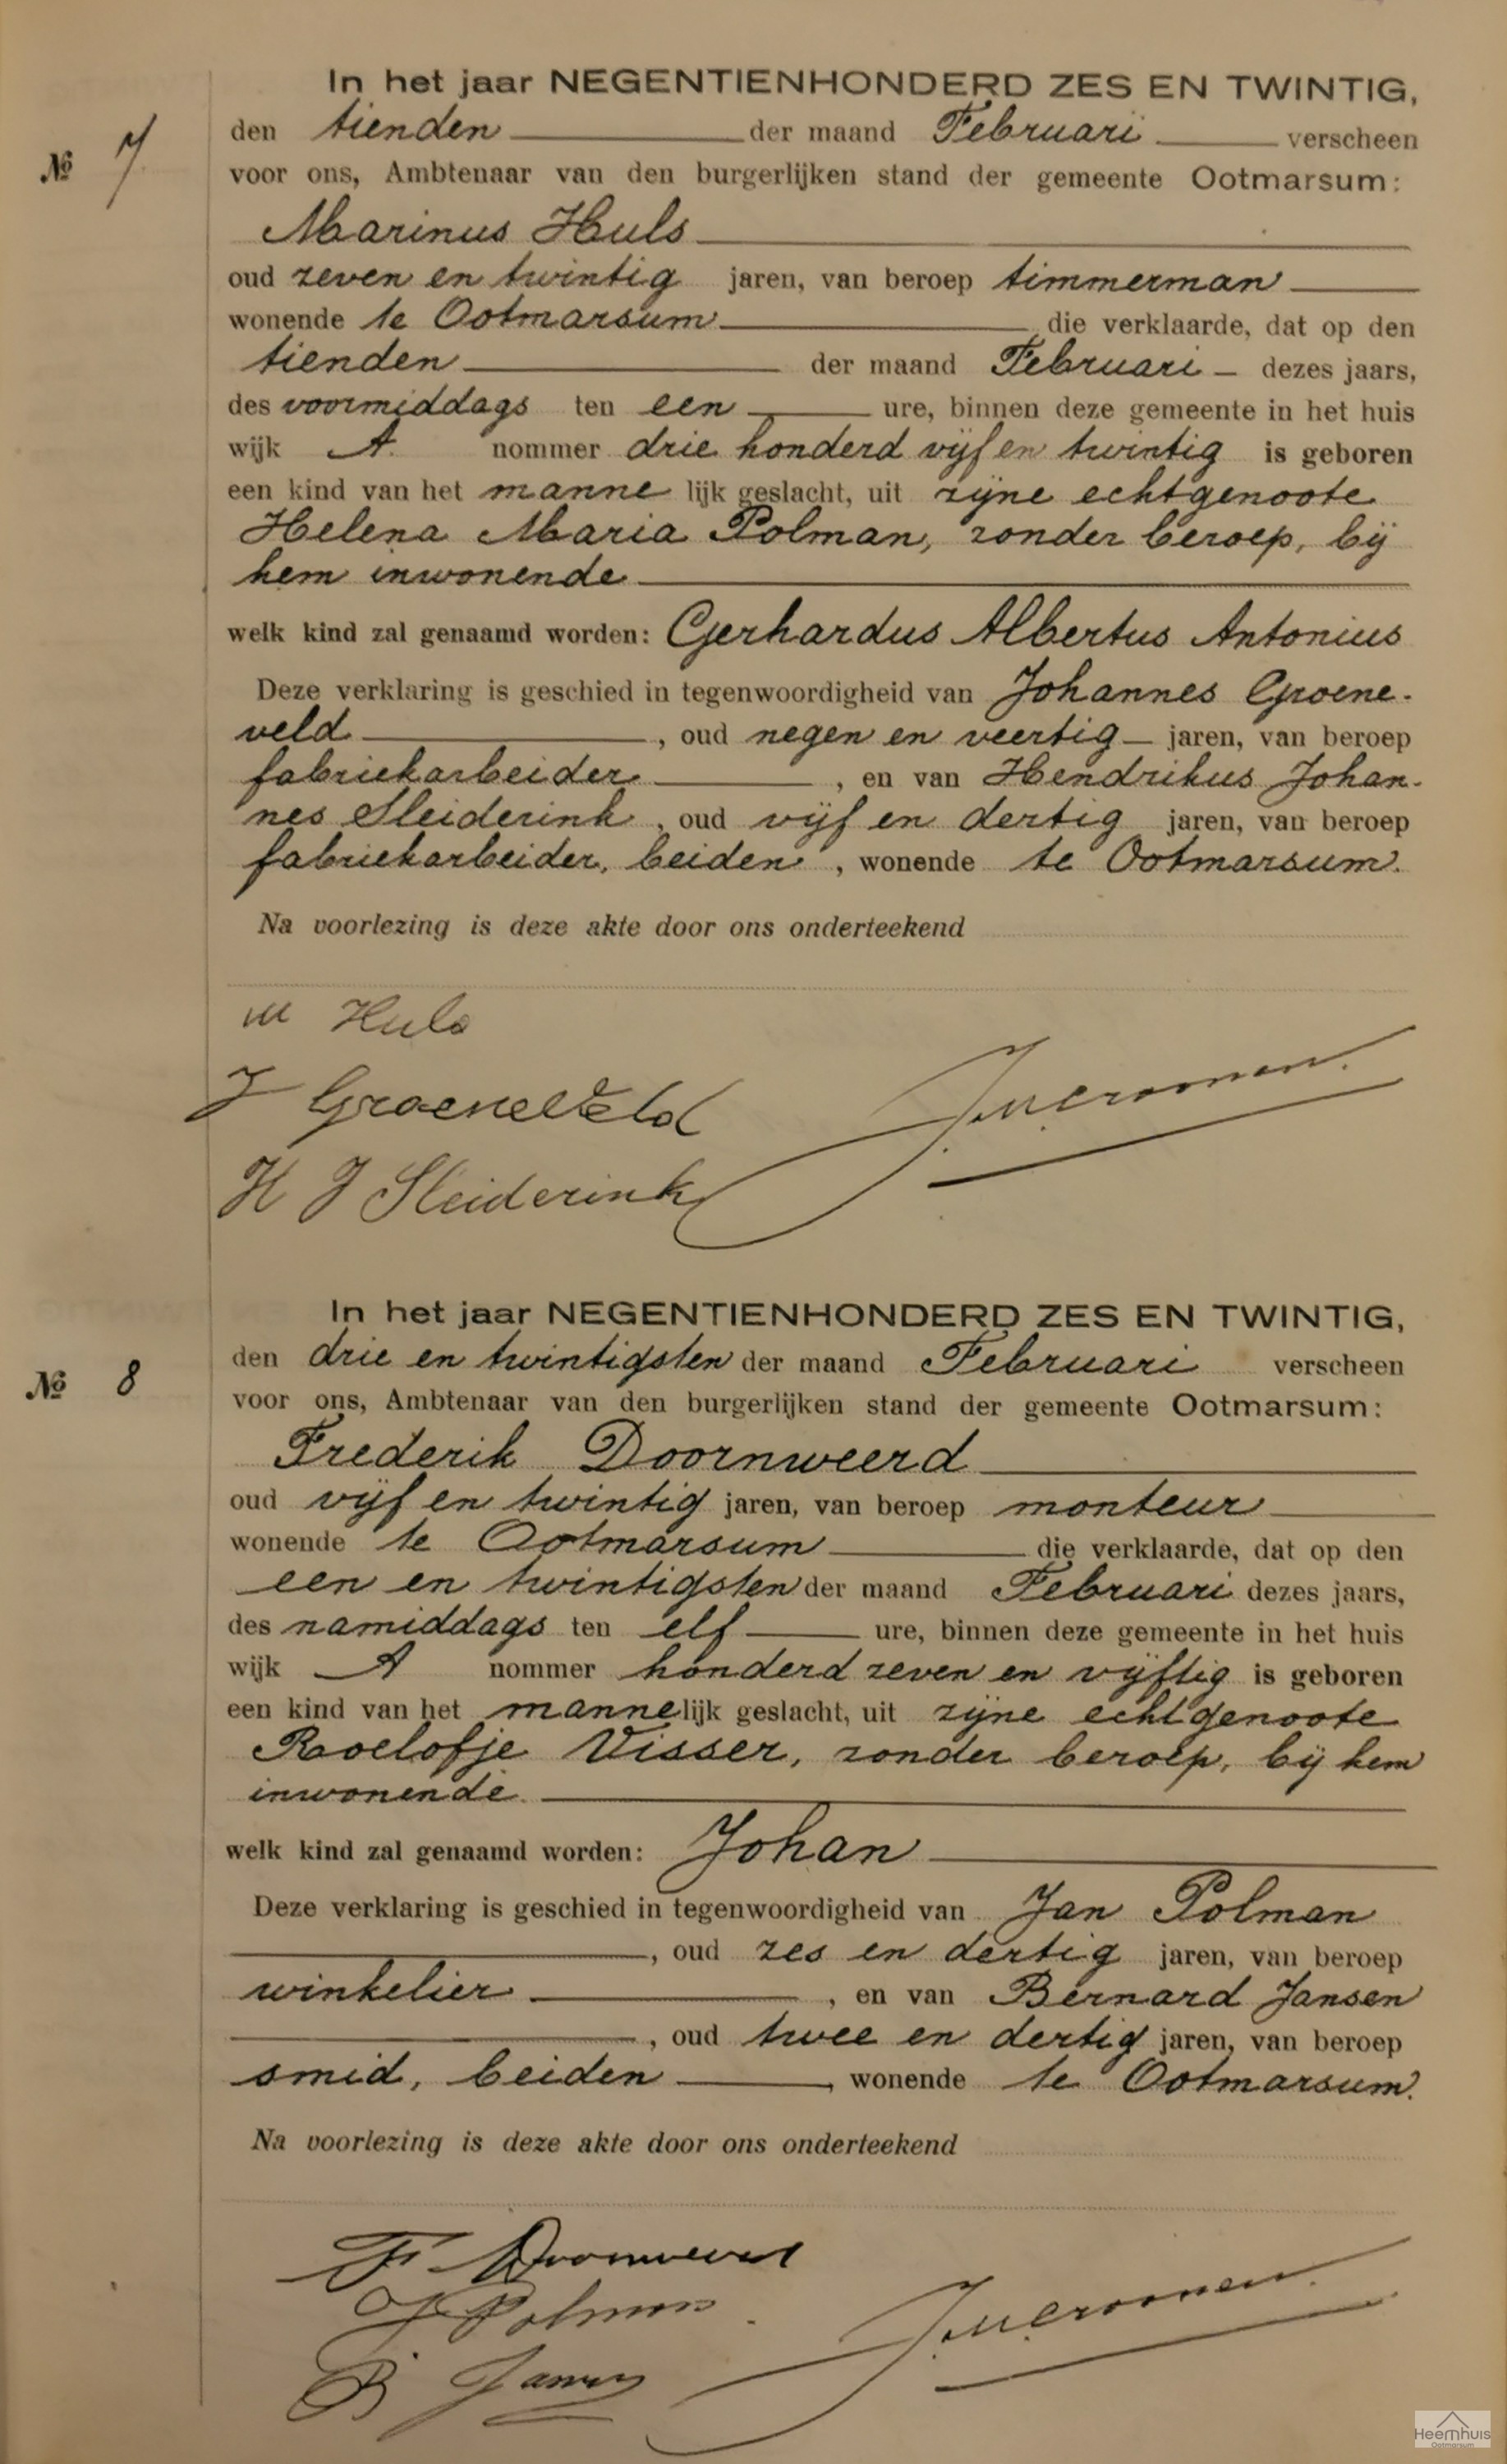 In het jaar NEGENTIENHONDERD ZES EN TWINTIG,
den tienden der maand Februari verscheen
№ 7
voor ons, Ambtenaar van den burgerlijken stand der gemeente Ootmarsum:
Marinus Huls
oud zeven en twintig jaren, van beroep timmerman
wonende te Ootmarsum die verklaarde, dat op den
tienden der maand Februari – dezes jaars,
des voormiddags ten een ure, binnen deze gemeente in het huis
wijk A. nommer drie honderd vijf en twintig is geboren
een kind van het mannelijk geslacht, uit zijne echtgenoote
Helena Maria Polman, zonder beroep, bij
hem inwonende
welk kind zal genaamd worden: Gerhardus Albertus Antonius
Deze verklaring is geschied in tegenwoordigheid van Johannes Groene-
veld, oud negen en veertig – jaren, van beroep
fabriekarbeider, en van Hendrikus Johan-
nes Sleiderink, oud vijf en dertig jaren, van beroep
fabriekarbeider, beiden, wonende te Ootmarsum.
Na voorlezing is deze akte door ons onderteekend
M Huls
J Groeneveld
H J Sleiderink
In het jaar NEGENTIENHONDERD ZES EN TWINTIG,
den drie en twintigsten der maand Februari verscheen
№ 8
voor ons, Ambtenaar van den burgerlijken stand der gemeente Ootmarsum:
Frederik Doornweerd
oud vijf en twintig jaren, van beroep monteur
wonende te Ootmarsum die verklaarde, dat op den
een en twintigsten der maand Februari dezes jaars,
des namiddags ten elf ure, binnen deze gemeente in het huis
wijk A nommer honderd zeven en vijftig is geboren
een kind van het mannelijk geslacht, uit zijne echtgenoote
Roelofje Visser, zonder beroep, bij hem
inwonende.
welk kind zal genaamd worden: Johan
Deze verklaring is geschied in tegenwoordigheid van Jan Polman
, oud zes en dertig jaren, van beroep
winkelier, en van Bernard Jansen
, oud twee en dertig jaren, van beroep
smid, beiden, wonende te Ootmarsum.
Na voorlezing is deze akte door ons onderteekend
F Doornweerd
J Polman
B Jansen
Heemhuis
Ootmarsum